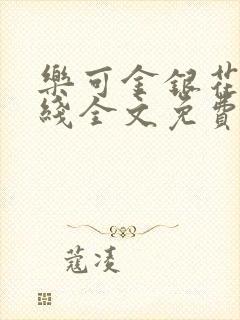 樂可金銀花
綫全文免費
蔻凌